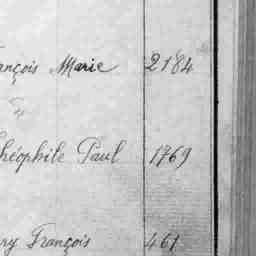 ançois Marie 2184
"
héophile Paul 1769
ry François 461